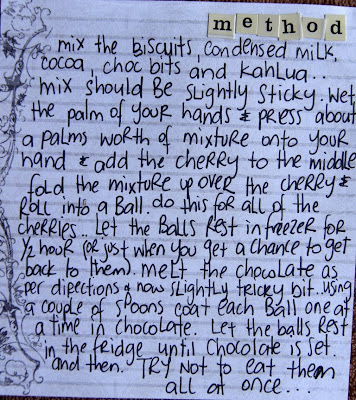 method
mix the biscuits, condensed milk,
cocoa, choc bits and kahlua..
mix should be slightly sticky. wet
the palm of your hands & press about
a palms worth of mixture onto your
hand & add the cherry to the middle
fold the mixture up over the cherry &
roll into a ball. do this for all of the
cherries.. Let the balls rest in freezer for
1/2 hour (or just when you get a chance to get
back to them). melt the chocolate as
per directions & now slightly tricky bit.. using
a couple of spoons coat each ball one at
a time in chocolate. Let the balls rest
in the fridge until chocolate is set.
and then. TRY not to eat them
all at once...